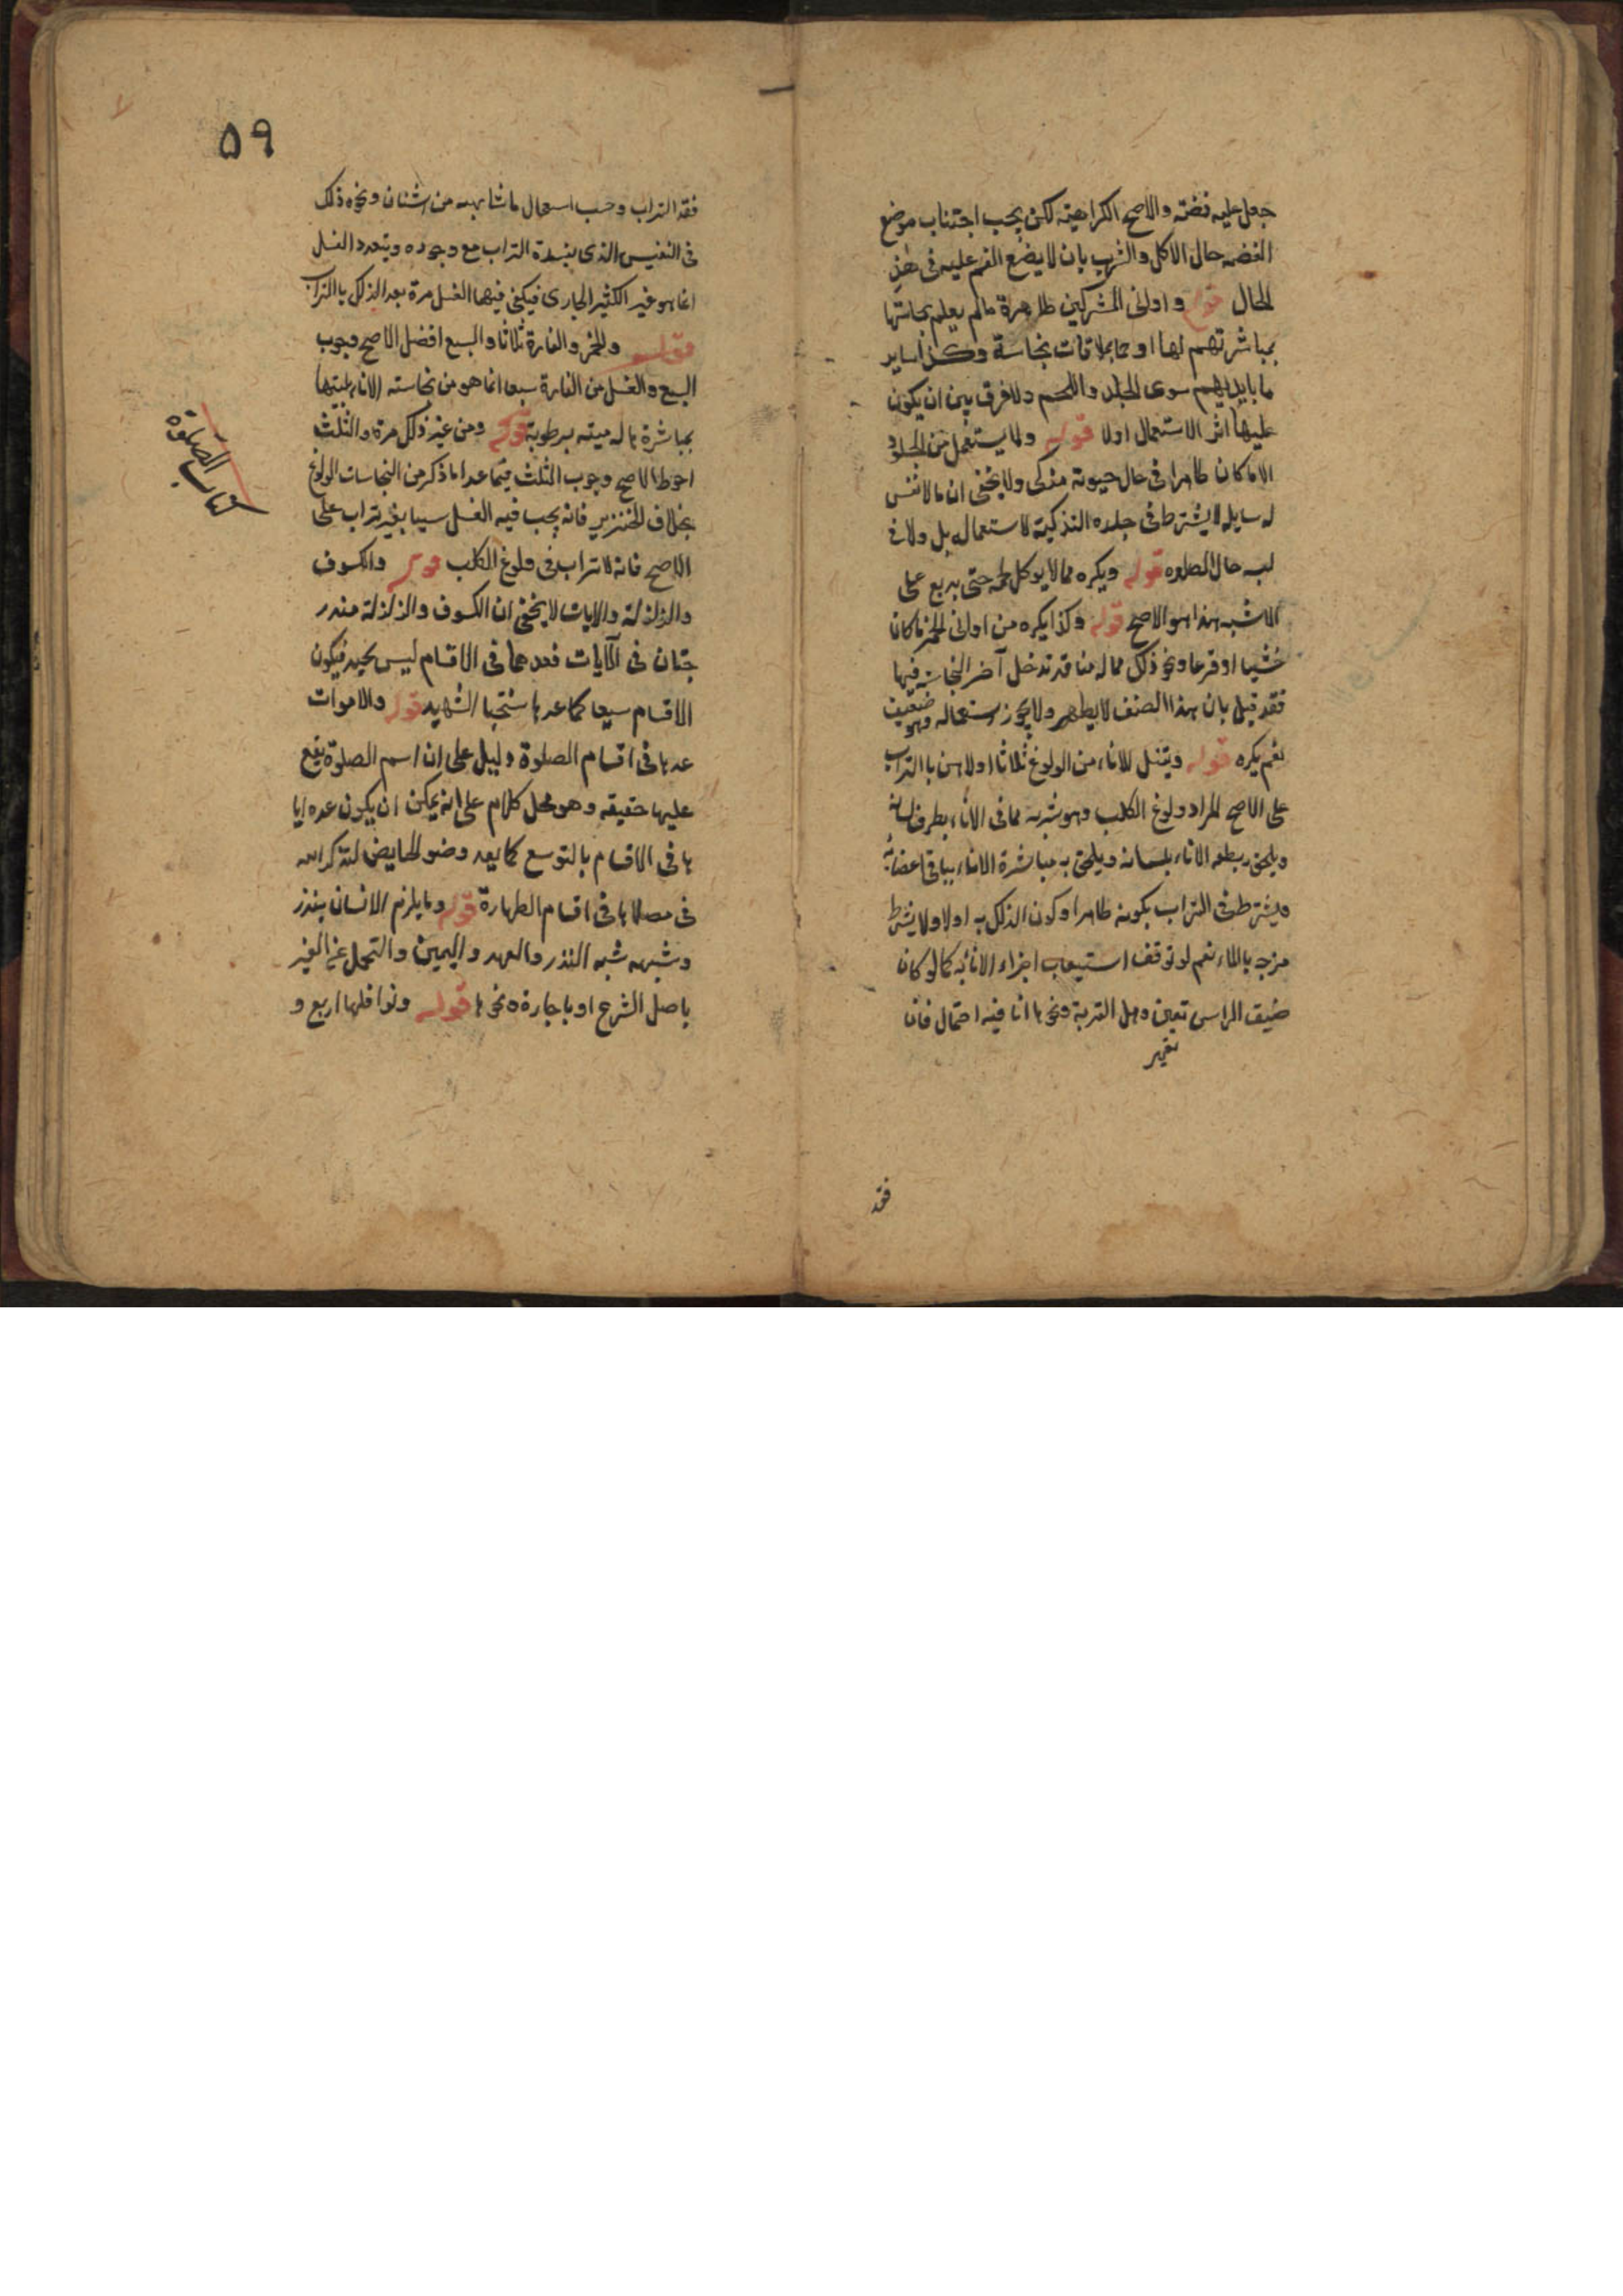 جعل عليه فضته والاصح الكراهيته لكن يجب اجتناب موضع
الفضه حال الاكل والشرب بان لا يضع الفم عليه فى هذ
الحال قوله واوانى المشركين طاهرة مالم يعلم نجاستها
بمباشرتهم لها او بملاقات نجاسة وكذا ساير
ما بايديهم سوى الجلد واللحم ولا فرق بين ان يكون
عليها اثر الاستعمال اولا قوله ولا يستعمل من الجلود
الا ما كان طاهرا فى حال حيوته مذكى ولا يخفى ان مالا نفس
له سايله لا يشترط فى جلده التذكية لاستعماله بل ولا فى
لبسه حال الصلوه قوله ويكره مما لا يوكل لحمه حتى يدبغ على
الاشبه هذا هو الاصح قوله وكذا يكره من اوانى الخمر ما كان
خشبا او قرعا ونحو ذلك مما له منا قد تدخل آخر النجاسة فيها
فقد قيل بان هذا الصنف لا يطهر ولا يجوز استعماله وهو ضعيف
نعم يكره قوله ويغسل الاناء من الولوغ ثلاثا اولاهن بالتراب
على الاصح المراد ولوغ الكلب وهو شربه مما فى الاناء بطرف لسانه
ويلحق به لطعه الاناء بلسانه ويلحق به مباشرة الاناء بباقى اعضائه
ويشترط فى التراب بكونه طاهرا وكون الدلك به اولا ولا يشترط
مزجه بالماء نعم لو توقف استيعاب اجزاء الاناء به كما لو كان
ضيق الراس تعين وهل التربة ونحوها انا فيه احتمال فان
تغير
فقد
٥٩
فقد التراب وجب استعمال ما شابهه من اشنان ونحوه ذلك
فى النفيس الذى يفسده التراب مع وجوده ويتعدد الغسل
انما هو غير الكثير الجارى فيكفى فيهما الغسل مرة بعد الدلك بالتراب
قوله وللخمر والفارة ثلاثا والسبع افضل الاصح وجوب
السبع والغسل من الفارة سبعا انما هو من نجاسته الاناء بميتها
بمباشرة ها له ميته برطوبة قوله ومن غير ذلك مرة والثلث
احوط الاصح وجوب الثلث فيما عدا ما ذكر من النجاسات الولوغ
بخلاف الخنزير فانه يجب فيه الغسل سبعا بغير تراب على
الاصح فانه لا تراب فى ولوغ الكلب قوله والكسوف
والزلزلة والايات لا يخفى ان الكسوف والزلزلة مندر
جتان فى الآيات فعدهما فى الاقسام ليس بجيد فيكون
الاقسام سبعا كما عدها شيخنا الشهيد قوله والاموات
عدها فى اقسام الصلوة دليل على ان اسم الصلوة يقع
عليها حقيقه وهو محل كلام على انه يمكن ان يكون عده ايا
ها فى الاقسام بالتوسع كما يعد وضو الحايض لتذكر الله
فى مصلاها فى اقسام الطهارة قوله وما يلزم الانسان بنذر
وشبهه شبه النذر والعهد واليمين والتحمل عن الغير
باصل الشرع او باجارة ونحوها قوله ونوافلها اربع و
كتاب الصلوة